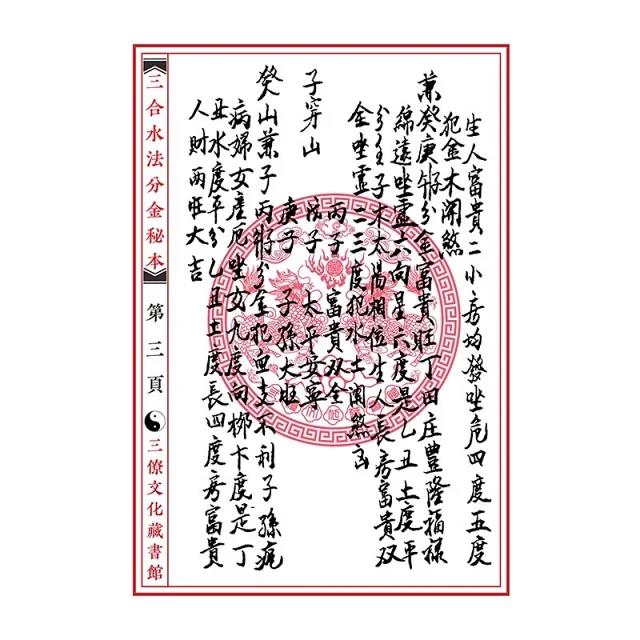 生人富貴二小房均發坐危四度五度
犯金木關煞
兼癸庚分金富貴旺丁田庄豐隆福祿
綿遠坐虛六向星六度是乙丑土度平
分壬子木太陽相位生人長房富貴双
金坐虛二三度犯水土關煞凶
子穿山
丙子 富貴双全
戊子 太平安寧
庚子 子孫大旺
癸山兼子丙分金犯血支不利子孫疤
病婦女產厄坐女九度向柳卞度是丁
丑水度平分乙丑土度長四度房富貴
人財兩旺大吉
三合水法分金秘本
第三頁
三僚文化藏書館